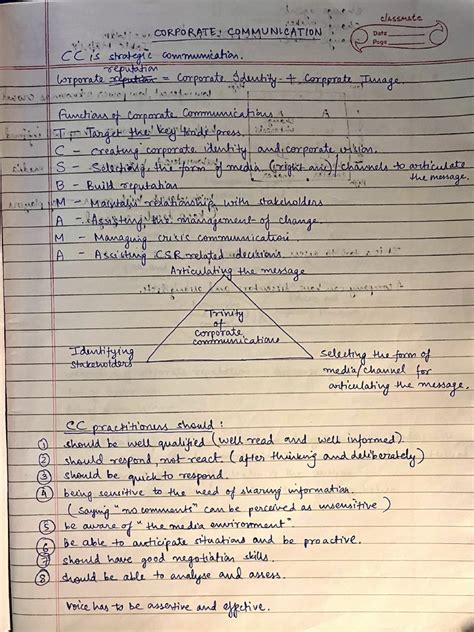 classmate
Date
Page
CORPORATE COMMUNICATION
CC is strategic communication.
reputation
Corporate = Corporate Identity + Corporate Image
Functions of Corporate Communications :
T - Target the key trade press.
C - creating corporate identity and corporate vision.
S - Selecting the form of media (right mix)/channels to articulate
the message.
B - Build reputation
M - Maintain relationship with stakeholders
A - Assisting the management of change.
M - Managing crisis communication.
A - Assisting CSR related decisions.
Articulating the message
Trinity
of
corporate
communications
Identifying
Stakeholders
Selecting the form of
media/channel for
articulating the message.
CC practitioners should :
1 should be well qualified (well read and well informed)
2 should respond, not react (after thinking and deliberately)
3 should be quick to respond.
4 being sensitive to the need of sharing information.
(saying "no comments" can be perceived as insensitive)
5 be aware of "the media environment"
6 be able to anticipate situations and be proactive.
7 should have good negotiation skills.
8 should be able to analyse and assess.
Voice has to be assertive and effective.